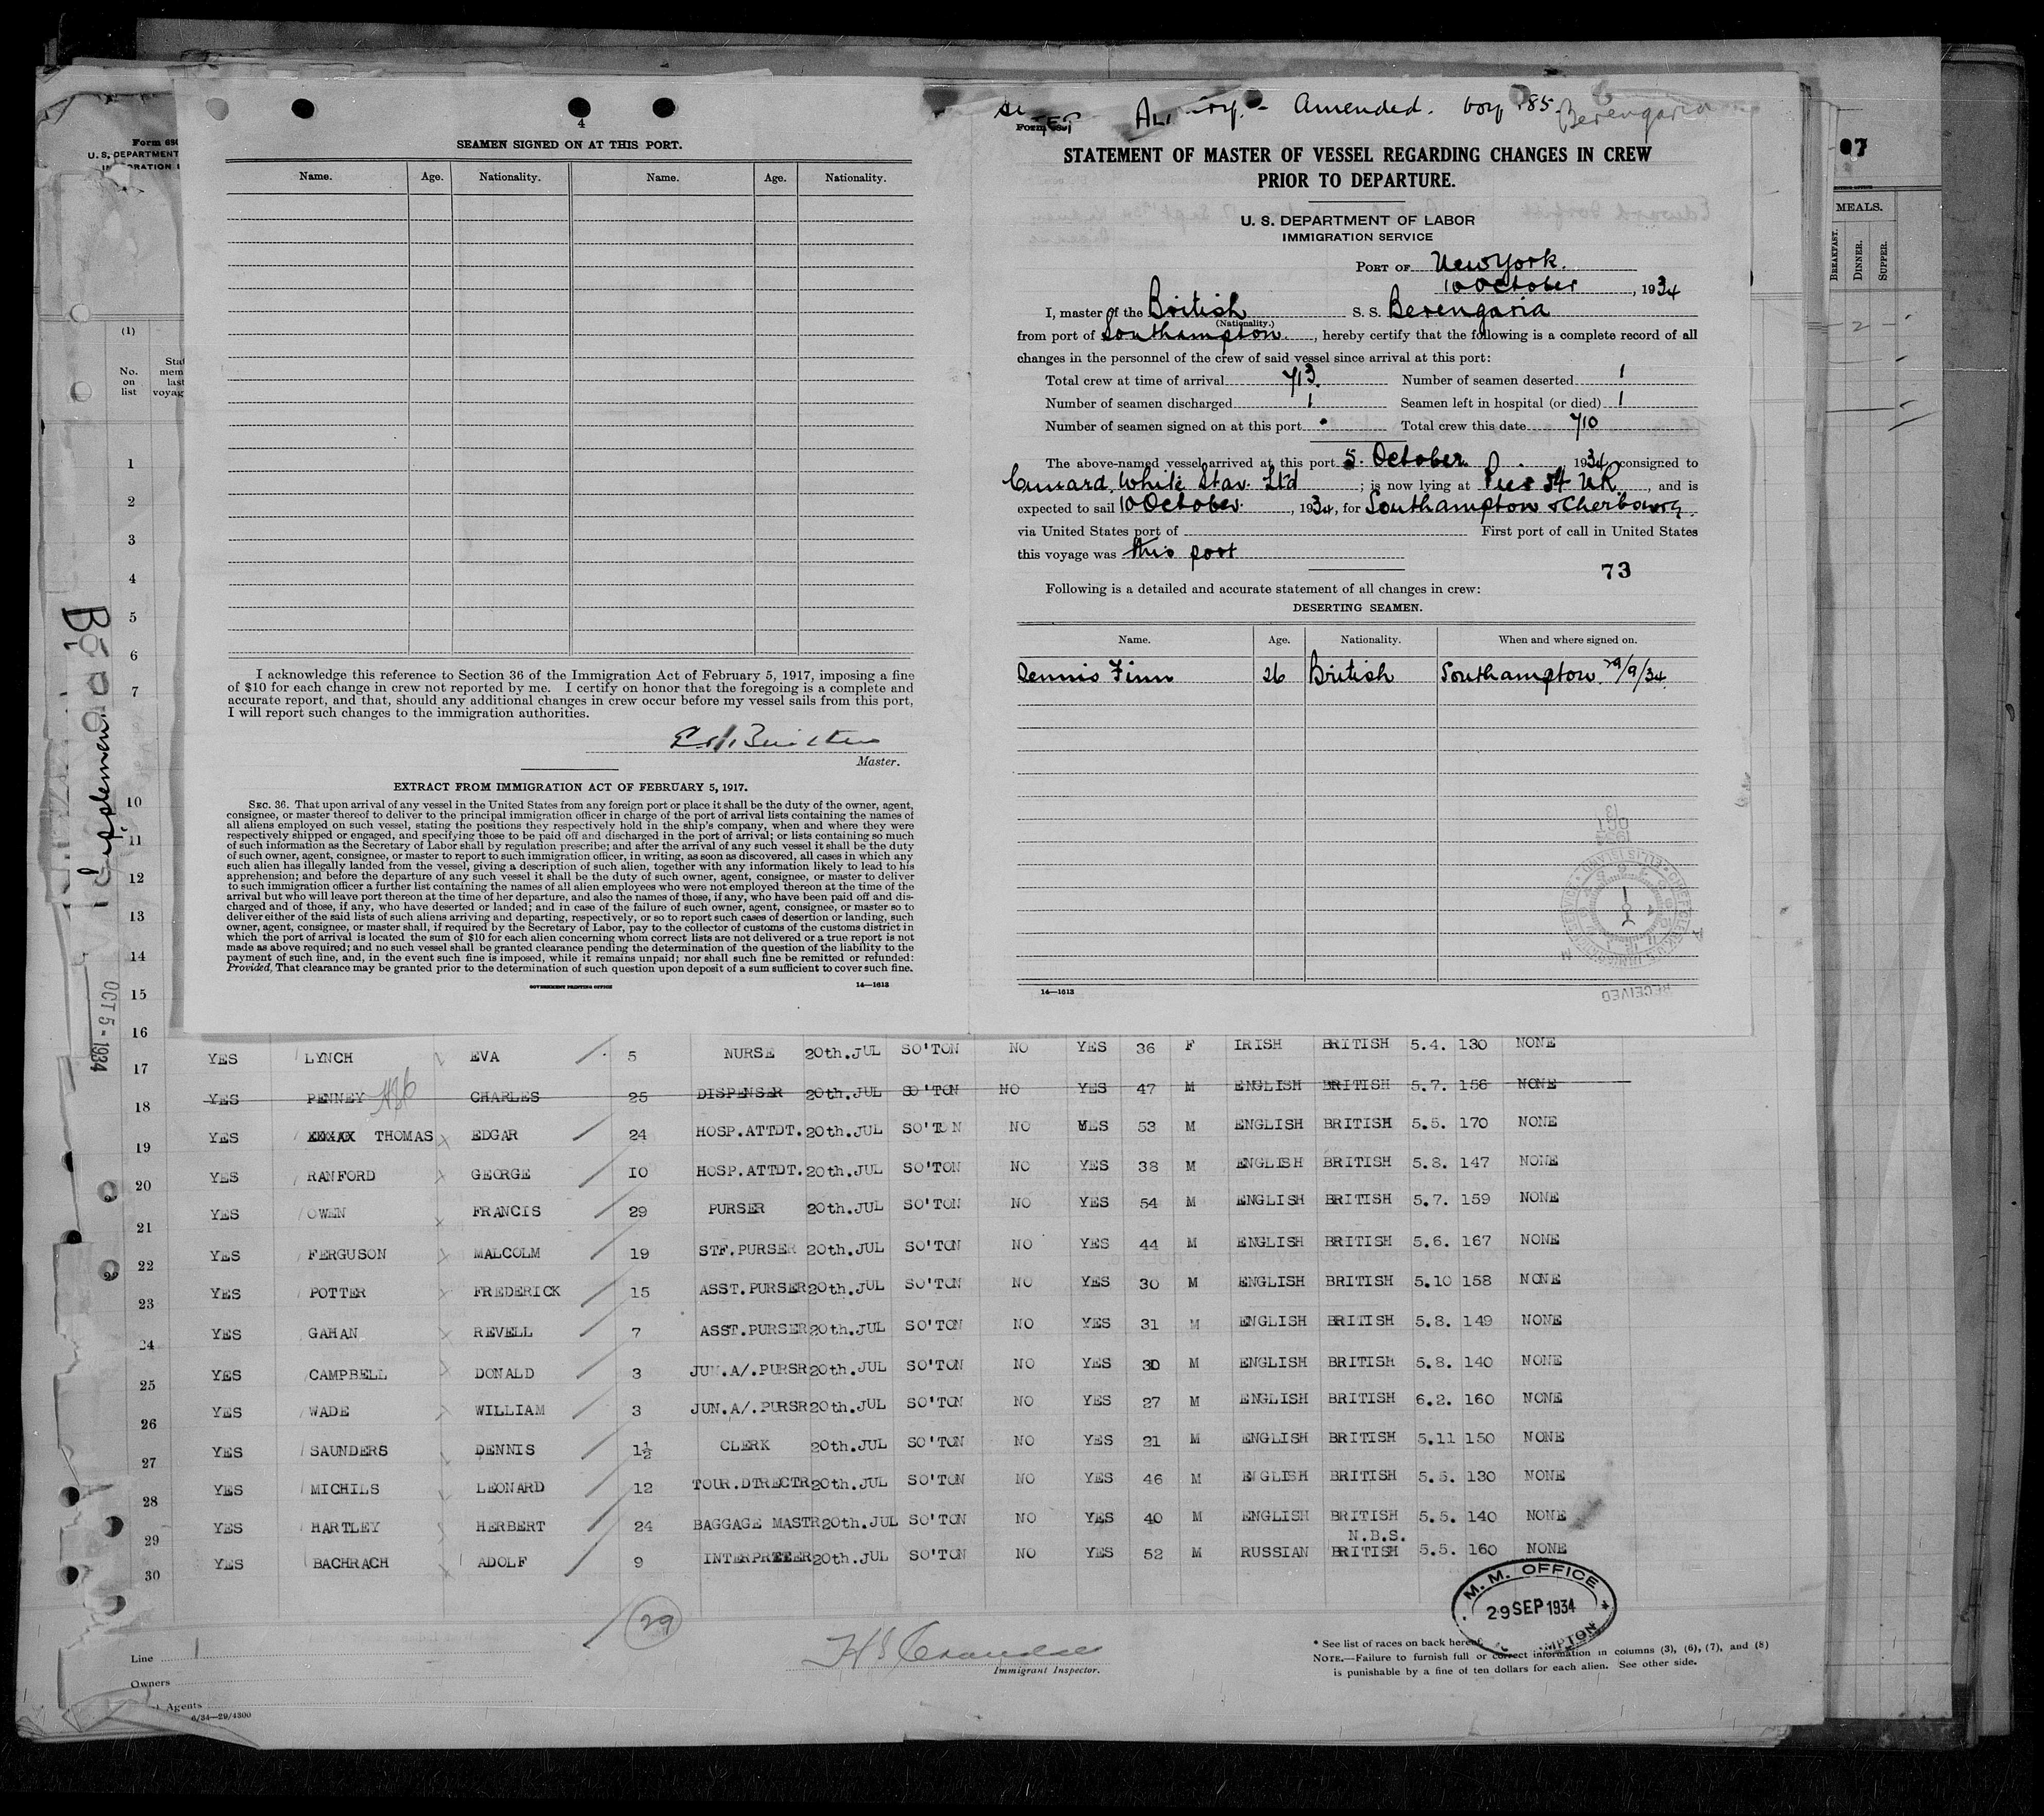 4
SEAMEN SIGNED ON AT THIS PORT.
Name. Age. Nationality. Name. Age. Nationality.
I acknowledge this reference to Section 36 of the Immigration Act of February 5, 1917, imposing a fine
of $10 for each change in crew not reported by me. I certify on honor that the foregoing is a complete and
accurate report, and that, should any additional changes in crew occur before my vessel sails from this port,
I will report such changes to the immigration authorities.
Master.
EXTRACT FROM IMMIGRATION ACT OF FEBRUARY 5, 1917.
SEC. 36. That upon arrival of any vessel in the United States from any foreign port or place it shall be the duty of the owner, agent,
consignee, or master thereof to deliver to the principal immigration officer in charge of the port of arrival lists containing the names of
all aliens employed on such vessel, stating the positions they respectively hold in the ship's company, when and where they were
respectively shipped or engaged, and specifying those to be paid off and discharged in the port of arrival; or lists containing so much
of such information as the Secretary of Labor shall by regulation prescribe; and after the arrival of any such vessel it shall be the duty
of such owner, agent, consignee, or master to report to such immigration officer, in writing, as soon as discovered, all cases in which any
such alien has illegally landed from the vessel, giving a description of such alien, together with any information likely to lead to his
apprehension; and before the departure of any such vessel it shall be the duty of such owner, agent, consignee, or master to deliver
to such immigration officer a further list containing the names of all alien employees who were not employed thereon at the time of the
arrival but who will leave port thereon at the time of her departure, and also the names of those, if any, who have been paid off and dis-
charged and of those, if any, who have deserted or landed; and in case of the failure of such owner, agent, consignee, or master so to
deliver either of the said lists of such aliens arriving and departing, respectively, or so to report such cases of desertion or landing, such
owner, agent, consignee, or master shall, if required by the Secretary of Labor, pay to the collector of customs of the customs district in
which the port of arrival is located the sum of $10 for each alien concerning whom correct lists are not delivered or a true report is not
made as above required; and no such vessel shall be granted clearance pending the determination of the question of the liability to the
payment of such fine, and, in the event such fine is imposed, while it remains unpaid; nor shall such fine be remitted or refunded:
Provided, That clearance may be granted prior to the determination of such question upon deposit of a sum sufficient to cover such fine.
GOVERNMENT PRINTING OFFICE 14—1613
Amended. voy 185. Berengaria
Form
STATEMENT OF MASTER OF VESSEL REGARDING CHANGES IN CREW
PRIOR TO DEPARTURE.
U. S. DEPARTMENT OF LABOR
IMMIGRATION SERVICE
PORT OF New York.
10 October, 1934
I, master of the British S. S. Berengaria
(Nationality.)
from port of Southampton, hereby certify that the following is a complete record of all
changes in the personnel of the crew of said vessel since arrival at this port:
Total crew at time of arrival 713. Number of seamen deserted 1
Number of seamen discharged 1 Seamen left in hospital (or died) 1
Number of seamen signed on at this port Total crew this date 710
The above-named vessel arrived at this port 5. October 1934, consigned to
Cunard White Star Ltd; is now lying at Pier 54 NR, and is
expected to sail 10 October, 1934, for Southampton & Cherbourg.
via United States port of First port of call in United States
this voyage was this port
73
Following is a detailed and accurate statement of all changes in crew:
DESERTING SEAMEN.
Name. Age. Nationality. When and where signed on.
Dennis Finn 26 British Southampton 29/9/34.
1934
OCT
13
RECEIVED
14—1613
Form 680
U. S. DEPARTMENT
(1)
No.
on
list
07
MEALS.
BREAKFAST.
DINNER.
SUPPER.
2
1
2
3
4
5
6
7
10
11
12
13
14
15
16
OCT 5 - 1934
17 YES LYNCH EVA 5 NURSE 20th.JUL SO'TON NO YES 36 F IRISH BRITISH 5.4. 130 NONE
18 YES PENNEY CHARLES 25 DISPENSER 20th.JUL SO'TON NO YES 47 M ENGLISH BRITISH 5.7. 156 NONE
19 YES THOMAS EDGAR 24 HOSP.ATTDT. 20th.JUL SO'TON NO YES 53 M ENGLISH BRITISH 5.5. 170 NONE
20 YES RANFORD GEORGE 10 HOSP.ATTDT. 20th.JUL SO'TON NO YES 38 M ENGLISH BRITISH 5.8. 147 NONE
21 YES OWEN FRANCIS 29 PURSER 20th.JUL SO'TON NO YES 54 M ENGLISH BRITISH 5.7. 159 NONE
22 YES FERGUSON MALCOLM 19 STF.PURSER 20th.JUL SO'TON NO YES 44 M ENGLISH BRITISH 5.6. 167 NONE
23 YES POTTER FREDERICK 15 ASST.PURSER 20th.JUL SO'TON NO YES 30 M ENGLISH BRITISH 5.10 158 NONE
24 YES GAHAN REVELL 7 ASST.PURSER 20th.JUL SO'TON NO YES 31 M ENGLISH BRITISH 5.8. 149 NONE
25 YES CAMPBELL DONALD 3 JUN.A/.PURSR 20th.JUL SO'TON NO YES 30 M ENGLISH BRITISH 5.8. 140 NONE
26 YES WADE WILLIAM 3 JUN.A/.PURSR 20th.JUL SO'TON NO YES 27 M ENGLISH BRITISH 6.2. 160 NONE
27 YES SAUNDERS DENNIS 1½ CLERK 20th.JUL SO'TON NO YES 21 M ENGLISH BRITISH 5.11 150 NONE
28 YES MICHILS LEONARD 12 TOUR.DTRECTR 20th.JUL SO'TON NO YES 46 M ENGLISH BRITISH 5.5. 130 NONE
29 YES HARTLEY HERBERT 24 BAGGAGE MASTR 20th.JUL SO'TON NO YES 40 M ENGLISH BRITISH 5.5. 140 NONE
N.B.S.
30 YES BACHRACH ADOLF 9 INTERPRETER 20th.JUL SO'TON NO YES 52 M RUSSIAN BRITISH 5.5. 160 NONE
29
M. M. OFFICE
29 SEP 1934
Line
Owners
Agents
6/34—29/4300
Immigrant Inspector.
* See list of races on back hereof.
NOTE.—Failure to furnish full or correct information in columns (3), (6), (7), and (8)
is punishable by a fine of ten dollars for each alien. See other side.